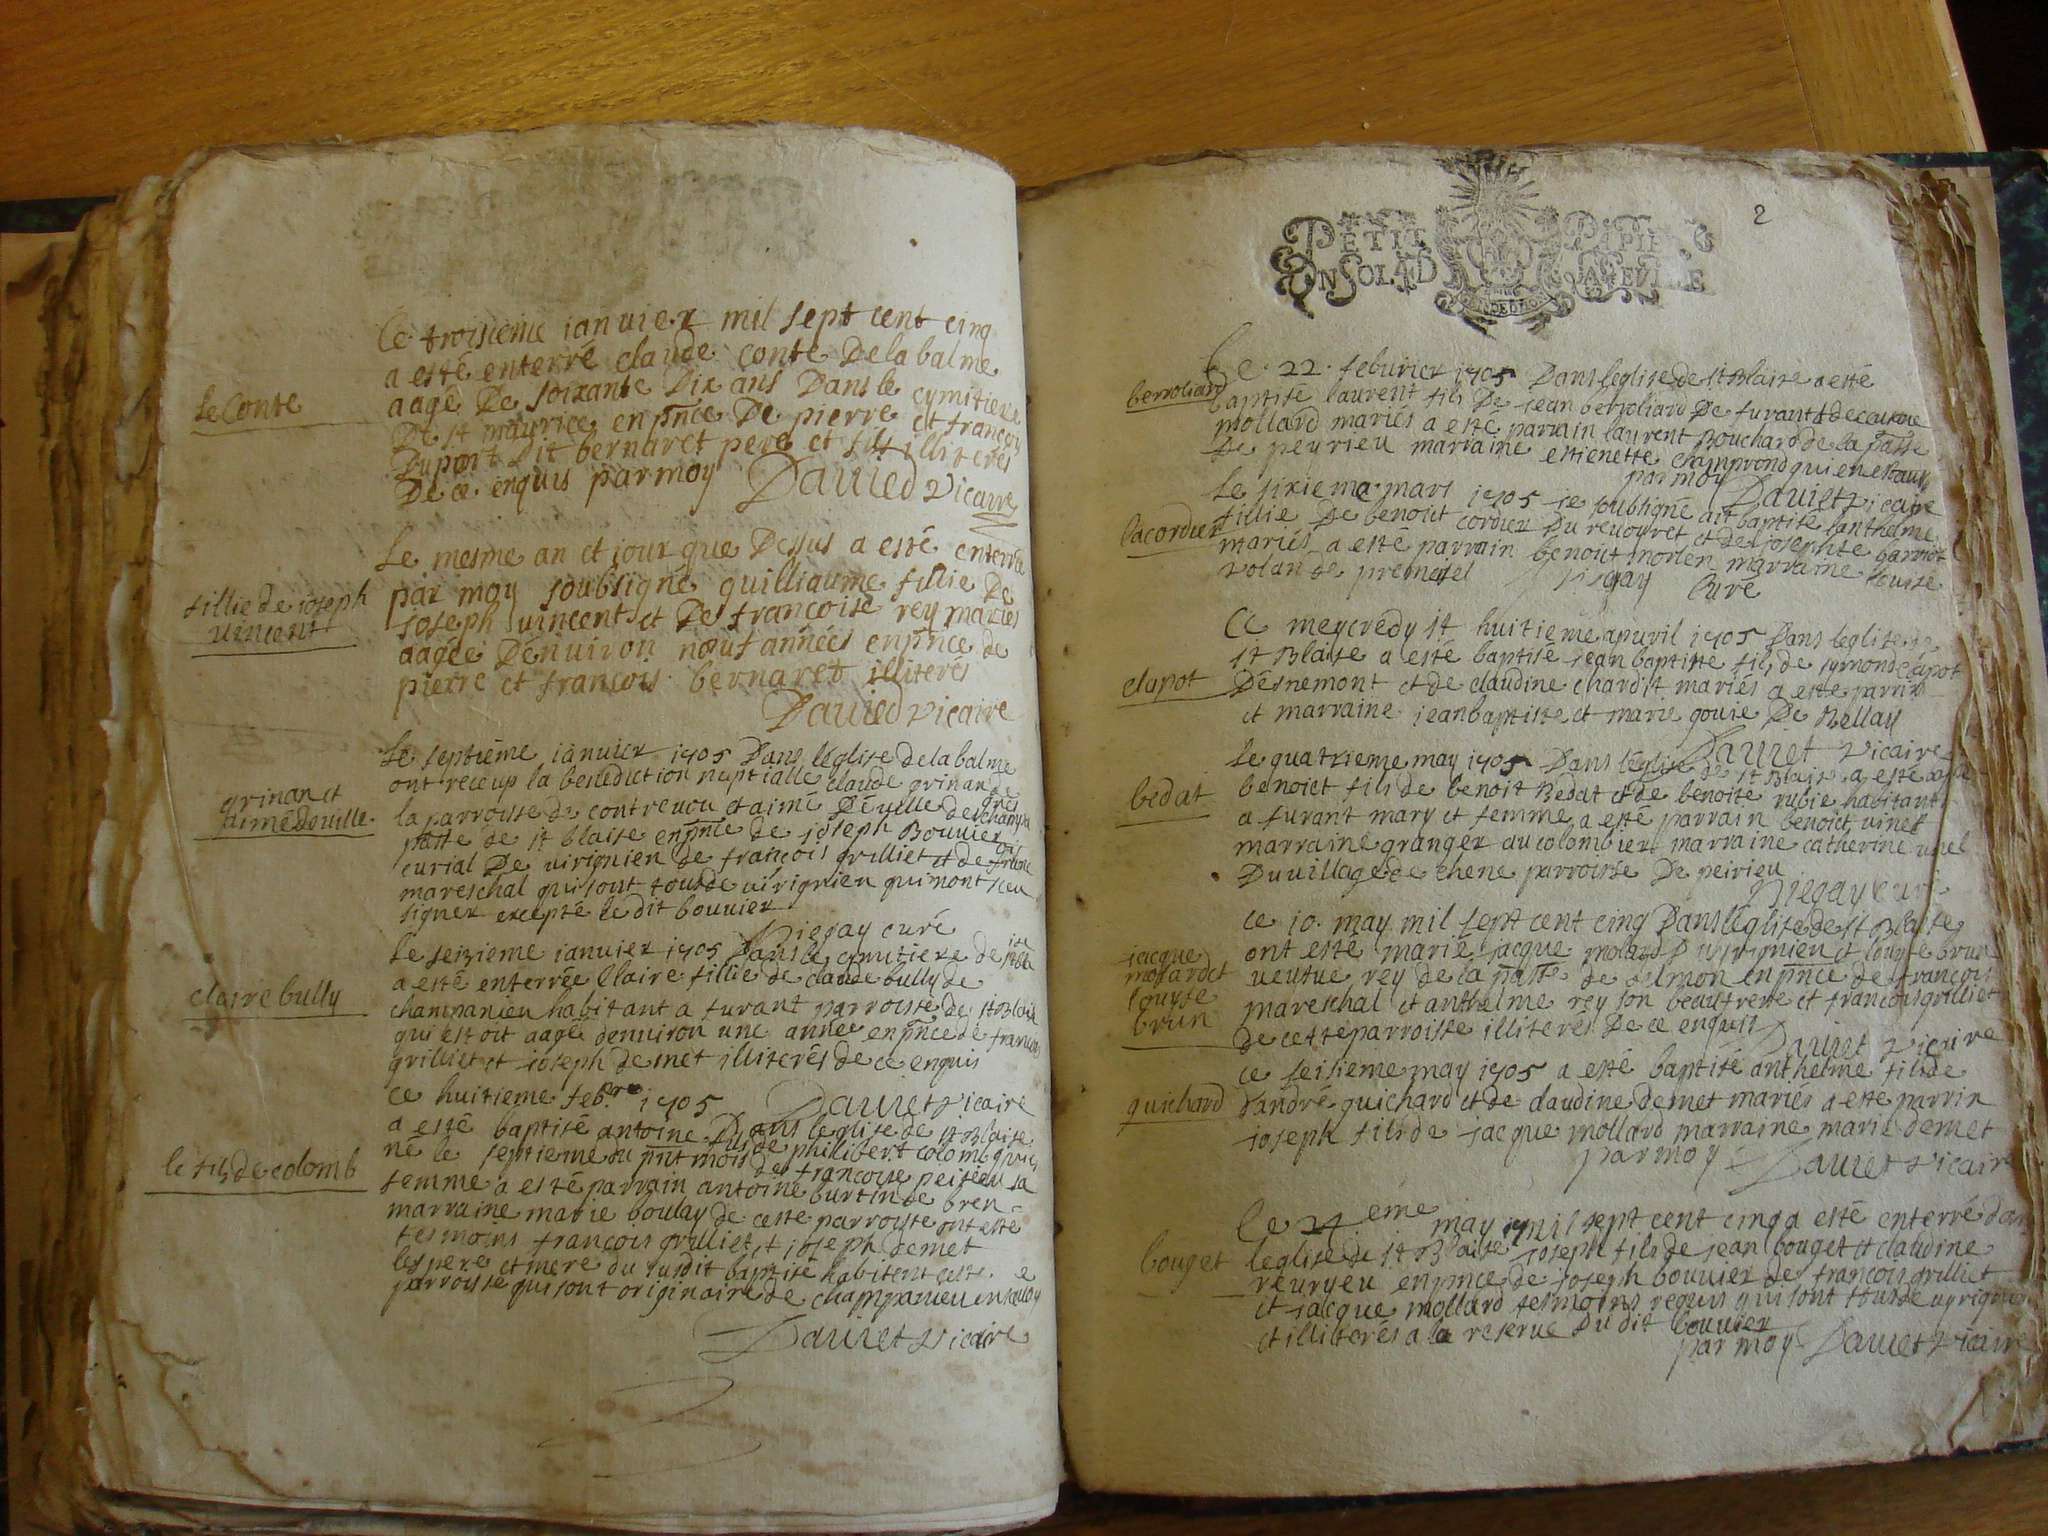 le troisieme ianuier mil sept cent cinq
a esté enterré claude conte De la balme
aagé De soixante Dix ans Dans le cymitiere
le Conte
De st maurice en pñce De pierre et francois
Dupont Dit bernaret pere et fils illiterés
De ce enquis par moy Dauied vicaire
Le mesme an et jour que Dessus a esté enterrée
par moy soubsigné guilliaume fillie De
fillie de ioseph
vincent
joseph vincent et De francoise rey mariés
aagée Denuiron neuf années en pñce de
pierre et francois bernaret illiterés
Dauied vicaire
Le septieme ianuier 1705 Dans léglise de la balme
ont receup la benediction nuptialle claude grinand de
grinan et
aimé deuille
la parroisse de contreuou et aimé Deuille des champs
passe de st blaise en pñce de joseph Bouuier
curial De virignien de françois grilliet et de
mareschal qui sont tous de virignien qui mont sceu
signer excepté le dit bouuier
Niegay curé
le seizieme ianuier 1705 Dans le cymitiere de
a esté enterrée Claire fillie de claude bully de
claire bully
chanmanieu habitant a furant parroisse de st Blaise
qui estoit aagé denuiron une année en pñce de francois
grilliet et ioseph demet illiterés de ce enquis
Dauiet vicaire
ce huitieme feb.re 1705 Dans leglise de st Blaise
a esté baptisé antoine fils de philibert colomb
né le septieme du pñt mois de francoise peisieu sa
le fils de colomb
femme a esté parrain antoine burtin de bren-
marraine marie boulay de ceste parroisse ont esté
tesmoins francois grilliet et ioseph demet
les pere et mere du susdit baptisé habitent ceste
parroisse qui sont originaire de champanieu en sauoy
Dauiet vicaire
2
PETIT PAPIER
UN SOL 4 D LA FEUILLE
le 22 feburier 1705 Dans léglise de st Blaise a esté
berroliard
baptisé laurent fils De jean berroliard De furant et de
mollard mariés a esté parrain laurent Bouchard de la passe
De peyrieu marraine estienette champrond qui en
par moy Dauiet vicaire
Le sixieme mars 1705 je soubsigné ait baptisé
lacordier
fillie De benoict cordier Du reuoyret et de josephte
mariés a esté parrain benoict morlen marraine louise
rolan de premeyel Niegay Curé
Ce meycredy st huitieme apuril 1705 Dans leglise de
st Blaise a esté baptisé jean baptiste fils de symond clapot
clapot
Desnemont et de claudine chardit mariés a este parrin
et marraine jean baptiste et marie gouie De Bellay
Dauiet vicaire
Le quatrieme may 1705 Dans léglise de st Blaise a esté
bedat
benoict fils de benoit Bedat et de benoite rubie habitants
a furant mary et femme a esté parrain benoict vinet
marraine granger au colombier marraine catherine
Du village de chene parroisse De peirieu
Niegay curé
ce 10. may mil sept cent cinq Dans léglise de st Blaise
jacque
mollard et
louyse
brun
ont esté marié jacque molard virignien et louyse brun
veufue rey de la passe de selmon en pñce de francois
mareschal et anthelme rey son beaufrere et francois grilliet
de cette parroisse illiterés De ce enquis
Dauiet vicaire
ce seisieme may 1705 a esté baptisé anthelme fils de
guichard
dandré guichard et de claudine demet mariés a este parrin
joseph fils de jacque mollard marraine marie demet
par moy Dauiet vicaire
le 24 eme may mil sept cent cinq a esté enterré dans
bouget
leglise de st Blaise joseph fils de jean bouget et claudine
reuryeu en pñce de joseph bouuier de francois grilliet
et jacque mollard tesmoins requis qui sont tous de
et illiterés a la reserue Du dit bouuier
par moy Dauiet vicaire